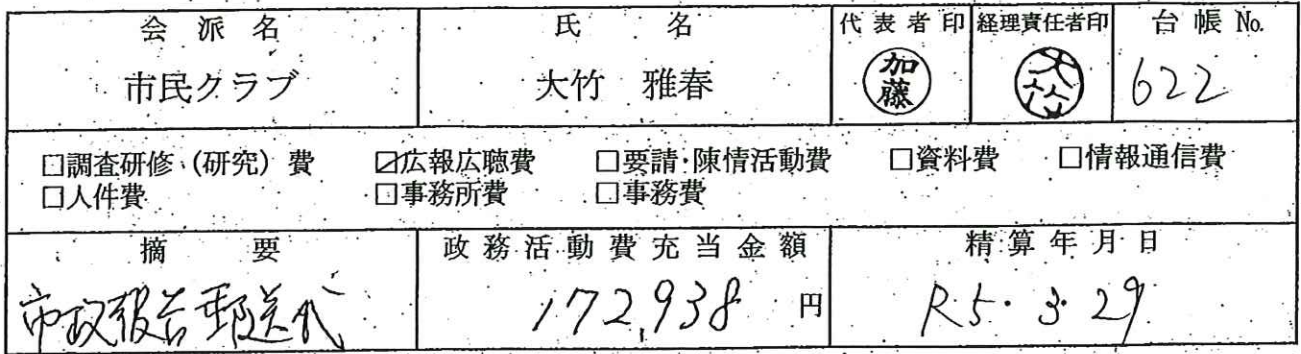 会派名 氏名 代表者印 経理責任者印 台帳 No.
市民クラブ 大竹 雅春 加藤 大竹 622
□調査研修（研究）費 ☑広報広聴費 □要請・陳情活動費 □資料費 □情報通信費
□人件費 □事務所費 □事務費
摘要 政務活動費充当金額 精算年月日
市政報告郵送代 172,938 円 R5・3・29